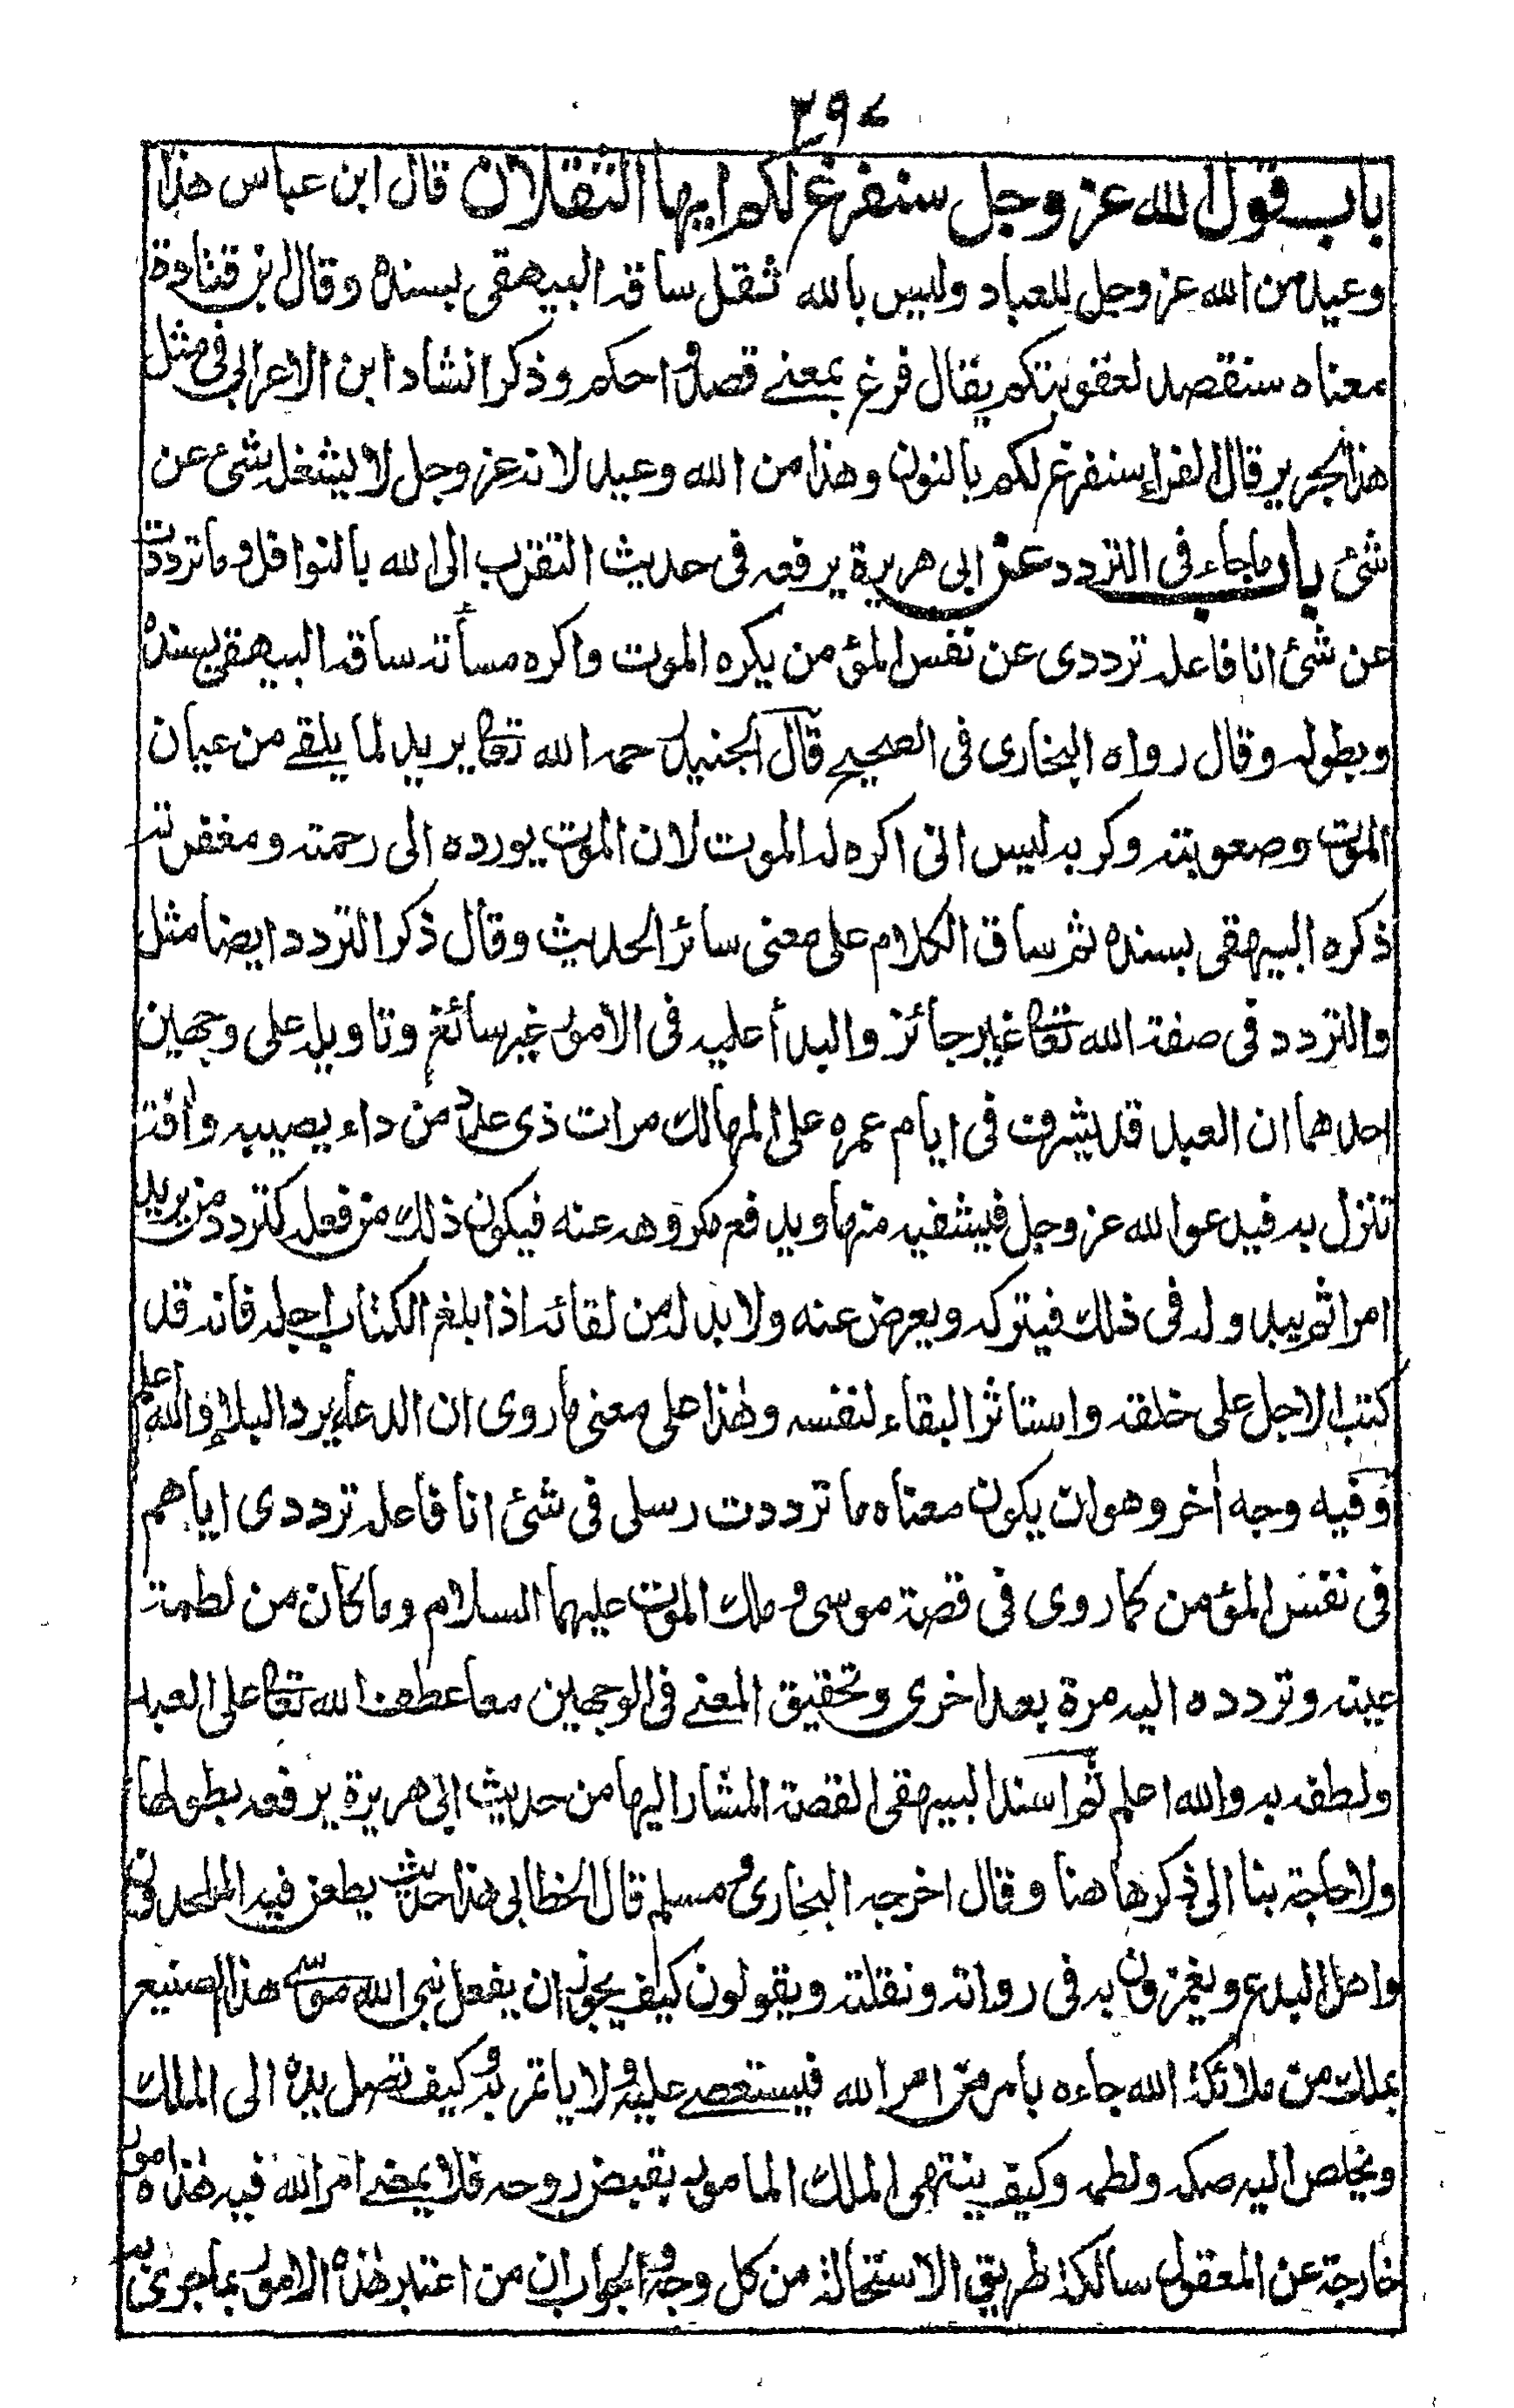 ٣٩٧
باب قول الله عز وجل سنفرغ لكم ايها الثقلان قال ابن عباس هذا
وعيد من الله عز وجل للعباد وليس بالله ثقل ساقه البيهقى بسنده وقال بن قتادة
معناه سنقصد لعقوبتكم يقال فرغ بمعنے قصد و احكم وذكر انشاد ابن الاعرابى فى مثل
هذا لجرير قال الفراء سنفرغ لكم بالنون وهذا من الله وعيد لانه عز وجل لا يشغله شئ عن
شئ باب ماجاء فى التردد عن ابى هريرة يرفعه فى حديث التقرب الى الله بالنوافل وما ترددت
عن شئ انا فاعله ترددى عن نفس المؤمن يكره الموت واكره مسأته ساقه البيهقى بسنده
وبطوله وقال رواه البخارى فى الصحيح قال الجنيد رحمه الله تعالى يريد لما يلقے من عيان
الموت وصعوبته وكربه ليس انى اكره له الموت لان الموت يورده الى رحمته ومغفرته
ذكره البيهقى بسنده ثم ساق الكلام على معنى سائر الحديث وقال ذكر التردد ايضا مثل
والتردد فى صفة الله تعالى غير جائز والبدأ عليه فى الامور غير سائغ وتاويله على وجهين
احدهما ان العبد قد يشرف فى ايام عمره على المهالك مرات ذى عدد من داء يصيبه وأفة
تنزل به فيدعوا الله عز وجل فيشفيه منها ويدفع مكروهه عنه فيكون ذلك من فعله كتردد من يريد
امرا ثم يبدو له فى ذلك فيتركه ويعرض عنه ولا بد له من لقائه اذا بلغ الكتاب اجله فانه قد
كتب الاجل على خلقه واستاثر البقاء لنفسه وهذا على معنى ما روى ان الدعاء يرد البلاء والله اعلم
وفيه وجه أخر وهو ان يكون معناه ما ترددت رسلى فى شئ انا فاعله ترددى اياهم
فى نفس المؤمن كما روى فى قصة موسى و ملك الموت عليهما السلام وما كان من لطمة
عينه وتردده اليه مرة بعد اخرى وتحقيق المعنے فى الوجهين معا عطف الله تعالى على العبد
ولطفه به والله اعلم ثم اسند البيهقى القصة المشار اليها من حديث ابى هريرة يرفعه بطولها
ولا حاجة بنا الى ذكرها هنا وقال اخرجه البخارى و مسلم قال الخطابى هذا حديث يطعن فيه الملحدون
واهل البدع ويغمزون به فى رواته ونقلته ويقولون كيف يجوز ان يفعل نبى الله موسى هذا الصنيع
بملك من ملائكة الله جاءه بامر من امر الله فيستعصے عليه و لا ياتمر به و كيف تصل يده الى الملك
ويخلص اليه صكه ولطمه وكيف ينتهى الملك المامور بقبض روحه فلا يمضے امر الله فيه هذه امور
خارجة عن المعقول سالكة طريق الاستحالة من كل وجه و الجواب ان من اعتبر هذه الامور بما جرى به